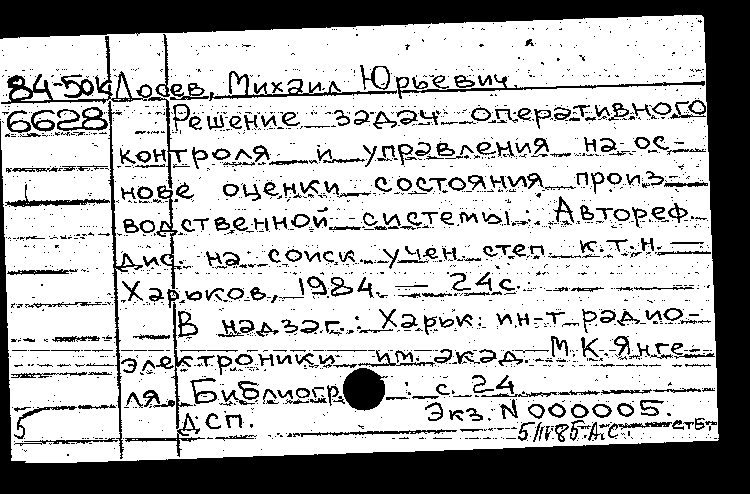 84-50к Лосев, Михаил Юрьевич.
6628 Решение задач оперативного
контроля и управления на ос-
нове оценки состояния произ-
водственной системы : Автореф.
дис. на соиск. учен. степ. к.т.н. —
Харьков, 1984. — 24с.
В надзаг.: Харьк. ин-т радио-
электроники им. акад. М.К. Янге-
ля. Библиогр : с. 24
ДСП. Экз. N 000005.
5